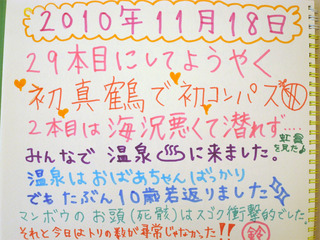 2010年11月18日
29本目にしてようやく
初真鶴で初コンパス
2本目は海況悪くて潜れず‥‥
虹を見た
みんなで温泉♨に来ました。
温泉はおばあちゃんばっかり
でもたぶん10歳若返りました
マンボウのお頭(死骸)はスゴク衝撃的でした。
それと今日はトリの数が尋常じゃなかった!!
鈴